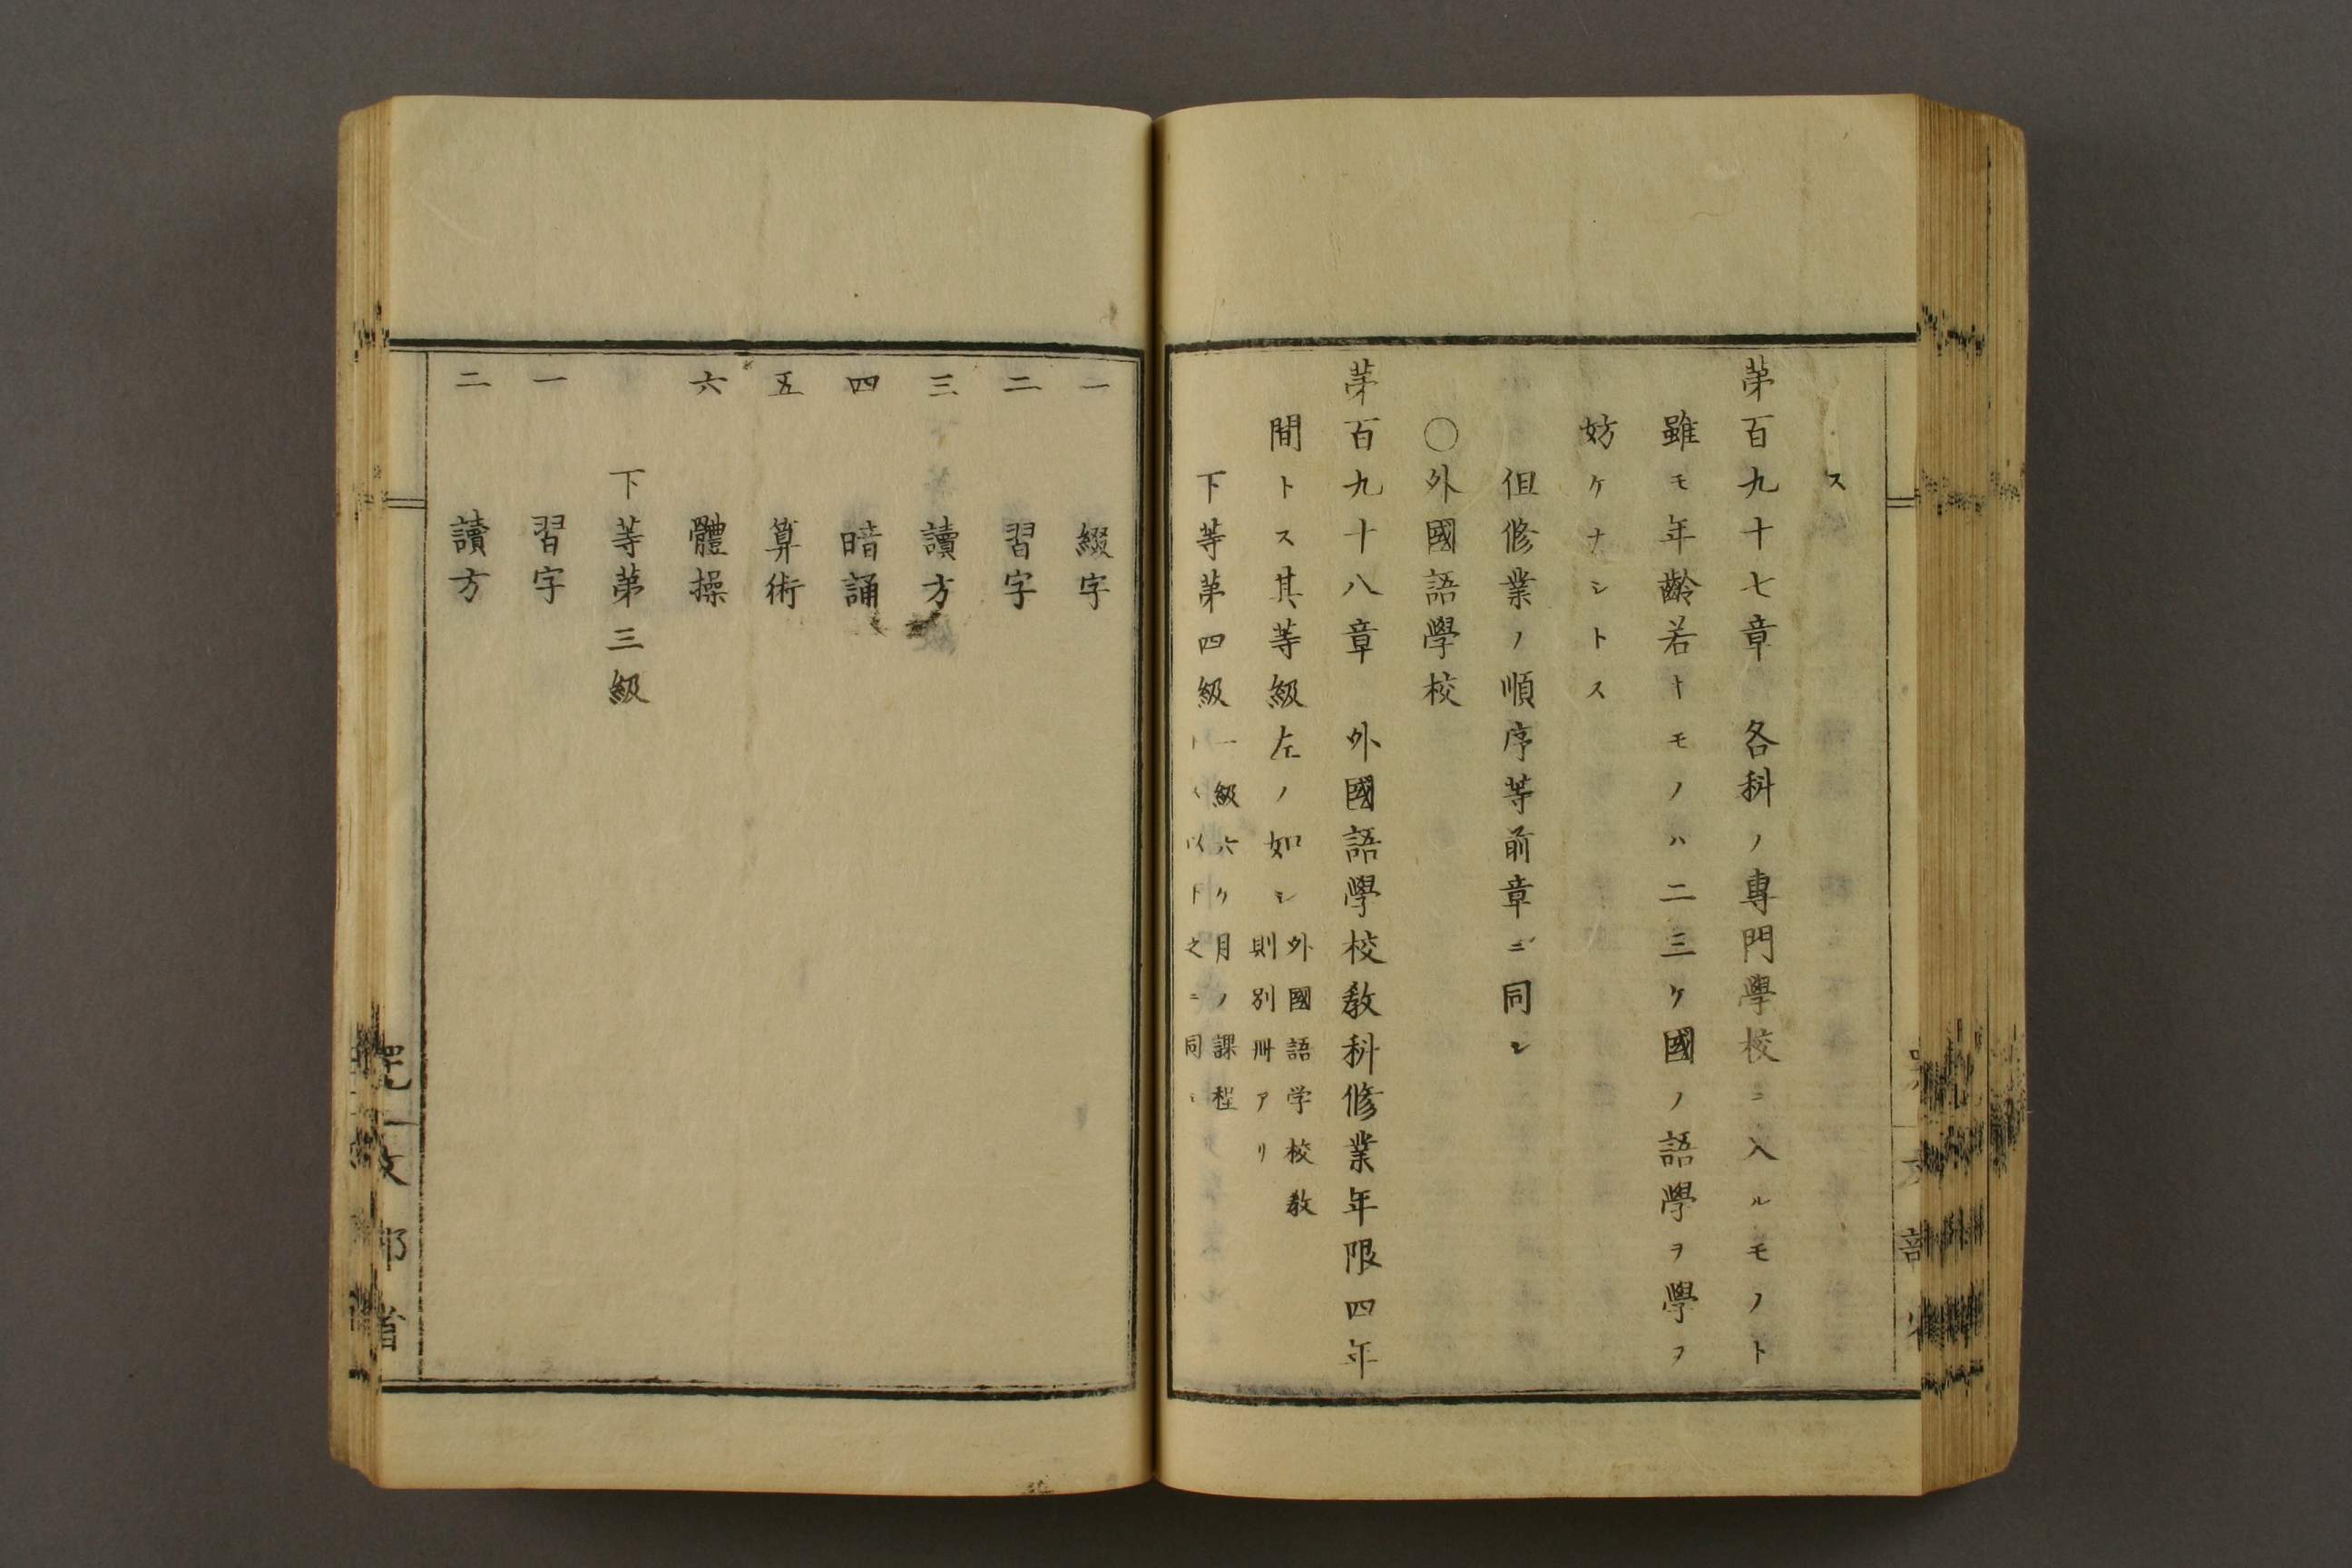 ス
第百九十七章　各科ノ專門學校ニ入ルモノト
雖モ年齡若キモノハ二三ケ國ノ語學ヲ學ヲ
妨ケナシトス
但修業ノ順序等前章ニ同シ
〇外國語學校
第百九十八章　外國語學校教科修業年限四年
間トス其等級左ノ如シ
外國語学校教
則別冊アリ
下等第四級
一級六ケ月ノ課程
以下之ニ同シ
一　綴字
二　習字
三　讀方
四　暗誦
五　算術
六　體操
下等第三級
一　習字
二　讀方
文部省